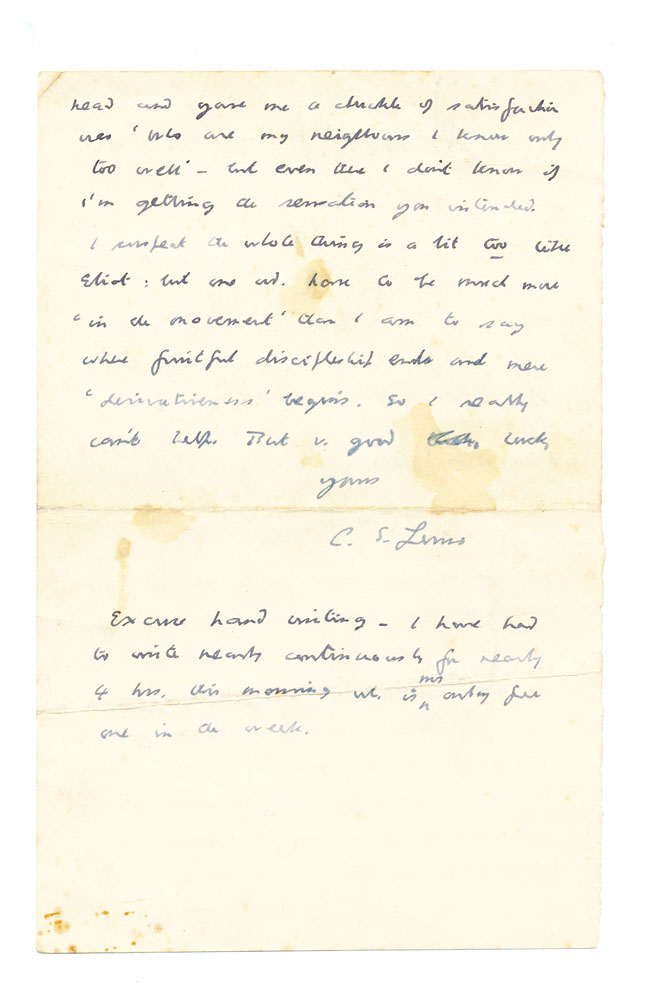 head and gave me a chuckle of satisfaction
was 'Who are my neighbours I know only
too well' – but even there I don't know if
I'm getting the sensation you intended.
I suspect the whole thing is a bit too like
Eliot: but one wd. have to be much more
'in the movement' than I am to say
where fruitful discipleship ends and mere
'derivativeness' begins. So I really
can't help. But v. good luck
yours
C. S. Lewis
Excuse hand writing – I have had
to write nearly continuously for nearly
4 hrs. this morning wh. is my only free
one in the week.